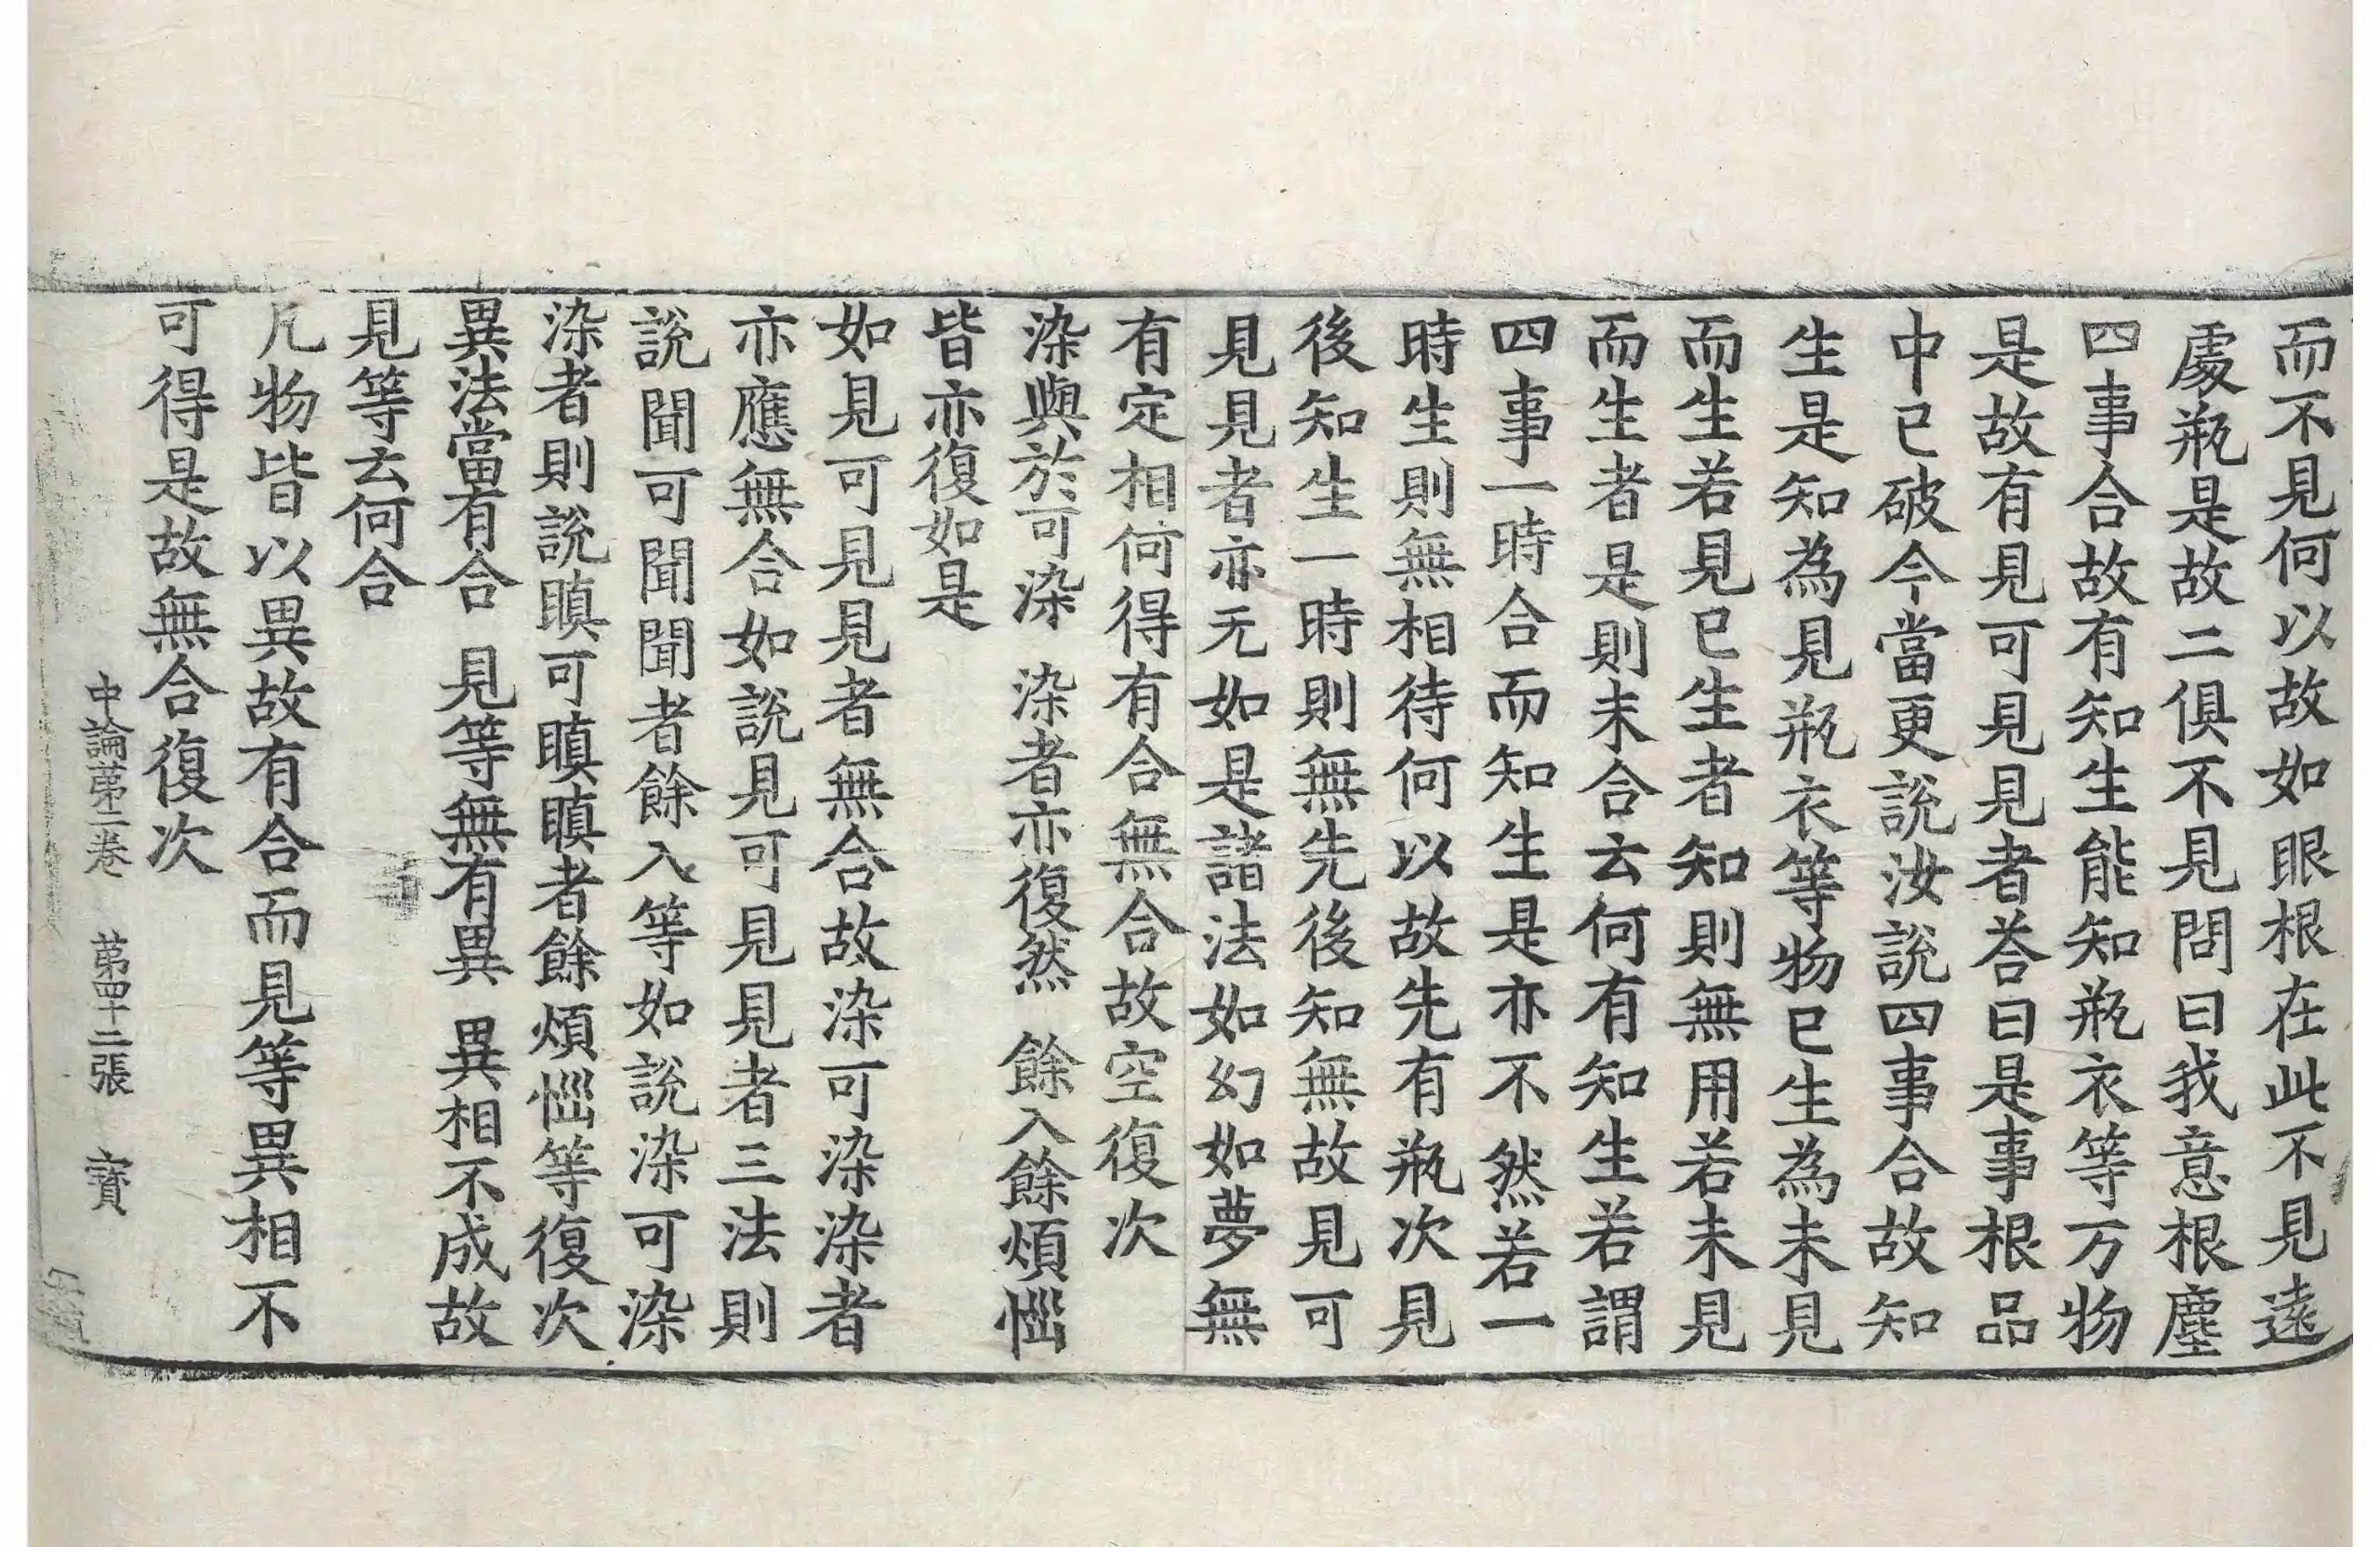 而不見何以故如眼根在此不見遠
處瓶是故二俱不見問曰我意根塵
四事合故有知生能知瓶衣等万物
是故有見可見見者荅曰是事根品
中已破今當更說汝說四事合故知
生是知為見瓶衣等物已生為未見
而生若見已生者知則無用若未見
而生者是則未合云何有知生若謂
四事一時合而知生是亦不然若一
時生則無相待何以故先有瓶次見
後知生一時則無先後知無故見可
見見者亦无如是諸法如幻如夢無
有定相何得有合無合故空復次
染與於可染 染者亦復然 餘入餘煩惱
皆亦復如是
如見可見見者無合故染可染染者
亦應無合如說見可見見者三法則
說聞可聞聞者餘入等如說染可染
染者則說瞋可瞋瞋者餘煩惱等復次
異法當有合 見等無有異 異相不成故
見等云何合
凡物皆以異故有合而見等異相不
可得是故無合復次
中論第二卷 第四十二張 寶